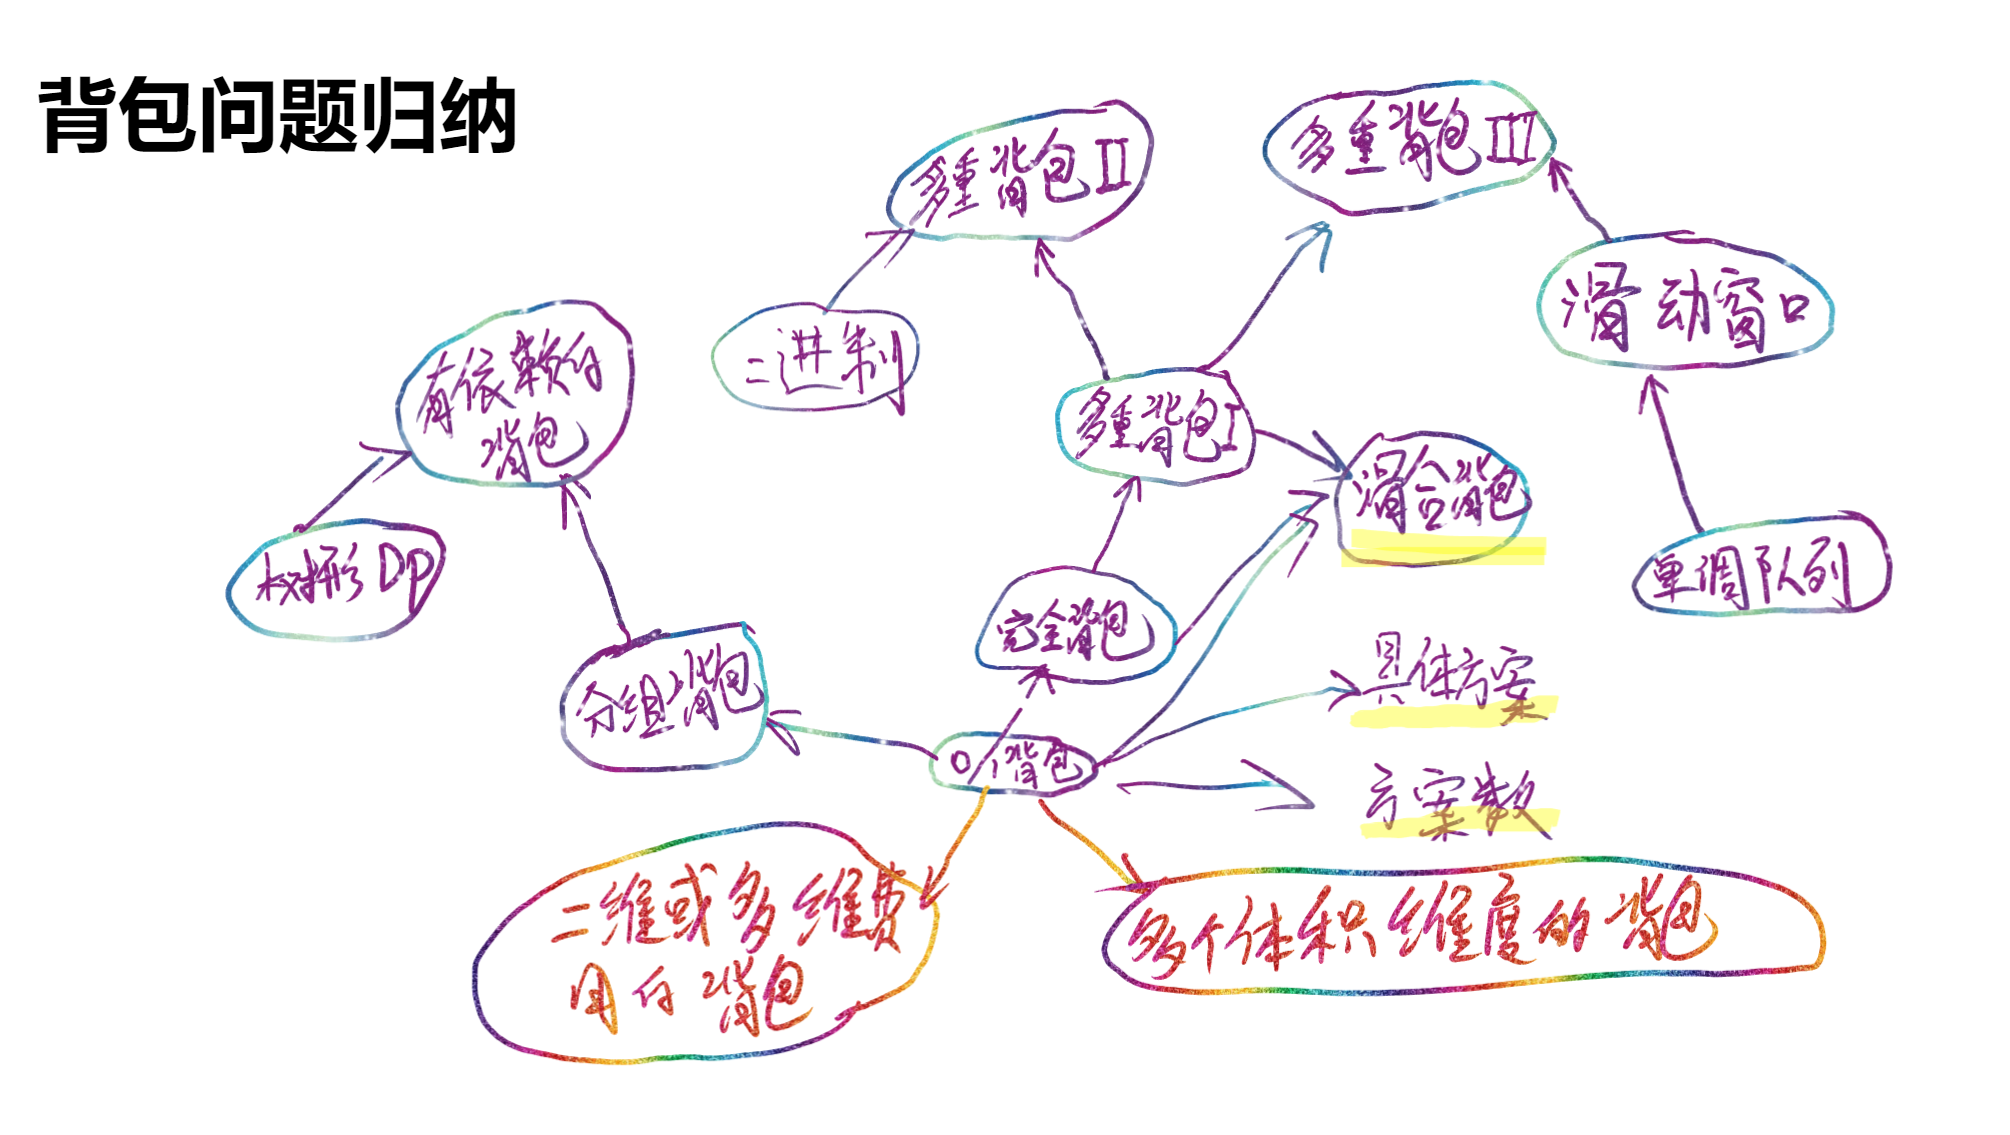 背包问题归纳
多重背包II
多重背包III
滑动窗口
二进制
有依赖的
背包
多重背包I
混合背包
树形DP
单调队列
完全背包
分组背包
具体方案
01背包
方案数
二维或多维费
用的背包
多个体积维度的背包